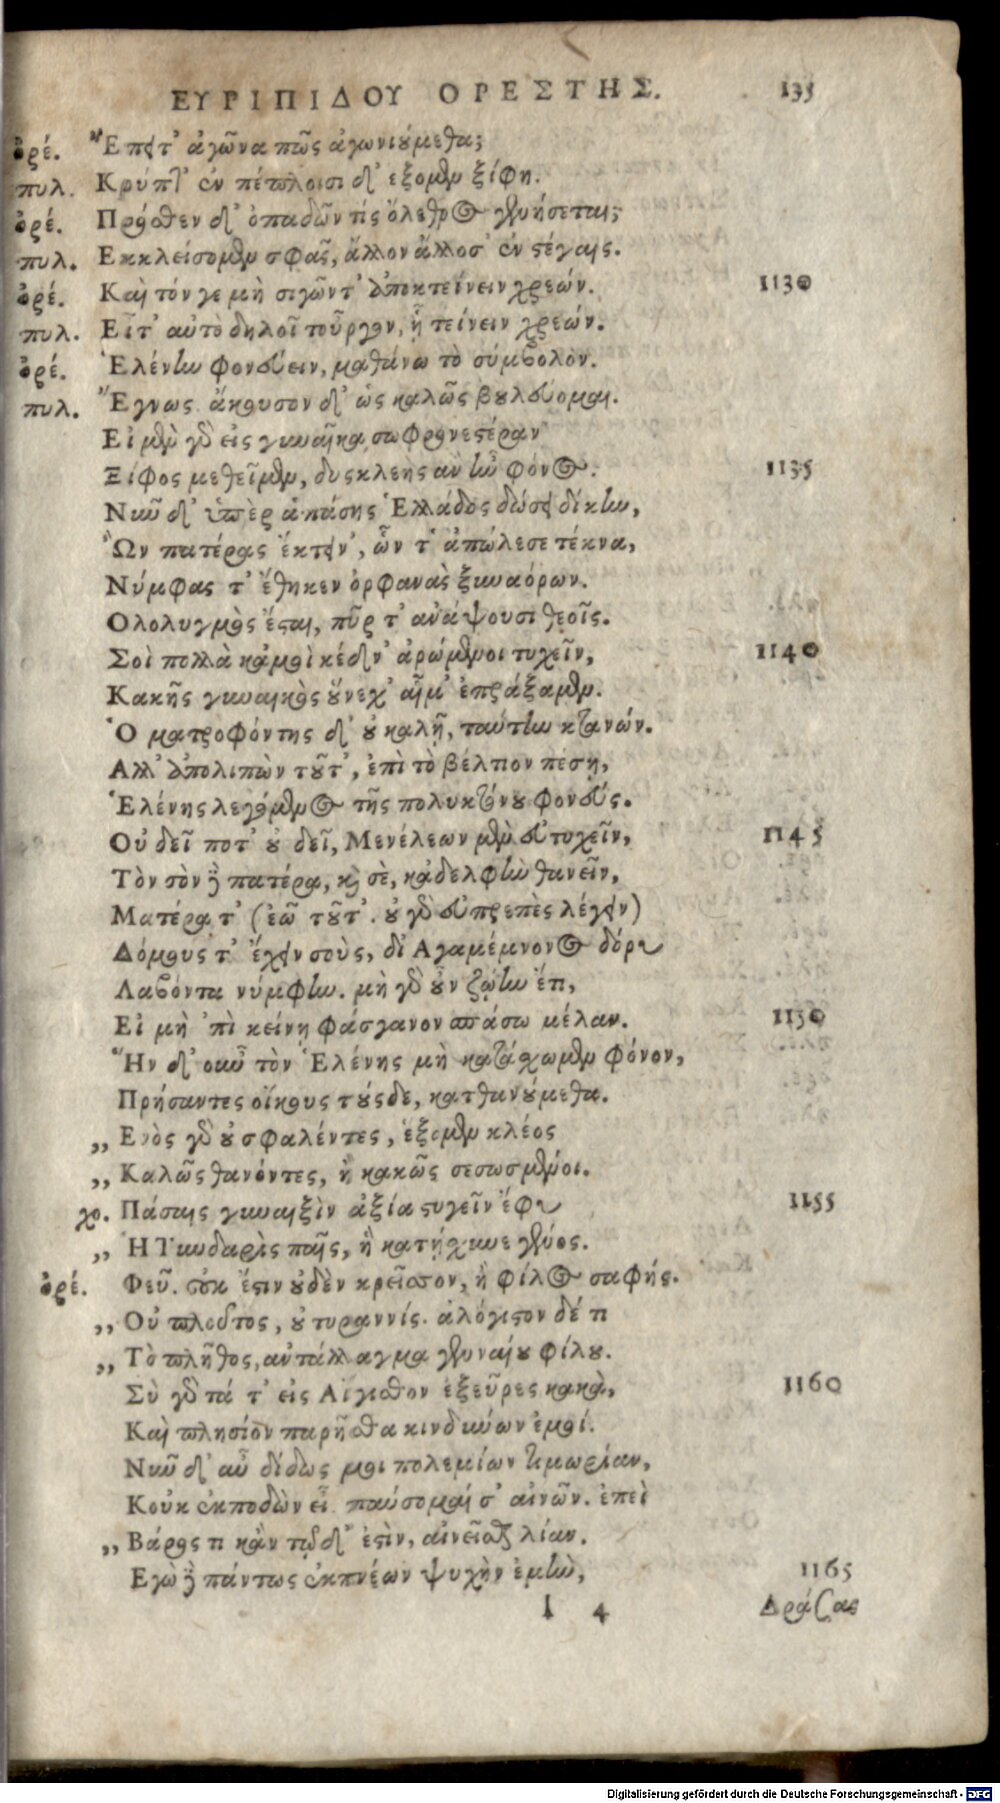 ΕΥΡΙΠΙΔΟΥ ΟΡΕΣΤΗΣ. 135
ὀρέ. Ἔπειτ' ἀγῶνα πῶς ἀγωνιούμεθα;
πυλ. Κρύπτ' ἐν πέπλοισι δ' ἕξομεν ξίφη.
ὀρέ. Πρόσθεν δ' ὀπαδῶν τίς ὄλεθρος γενήσεται;
πυλ. Εκκλείσομεν σφᾶς, ἄλλον ἄλλοσ' ἐν στέγαις.
ὀρέ. Καὶ τόν γε μὴ σιγῶντ' ἀποκτείνειν χρεών. 1130
πυλ. Εἶτ' αὐτὸ δηλοῖ τοὖργον, ᾗ τείνειν χρεών.
ὀρέ. Ἑλένην φονεύειν, μαθάνω τὸ σύμβολον.
πυλ. Ἔγνως. ἄκουσον δ' ὡς καλῶς βουλεύομαι.
Εἰ μὲν γὸ εἰς γυναῖκα σωφρονεστέραν
Ξίφος μεθεῖμεν, δυσκλεὴς ἂν ἦν φόνος. 1135
Νῦν δ' ὑπὲρ ἁπάσης Ἑλλάδος δώσει δίκην,
Ὧν πατέρας ἔκτειν', ὧν τ' ἀπώλεσε τέκνα,
Νύμφας τ' ἔθηκεν ὀρφανὰς ξυναόρων.
Ολολυγμὸς ἔσται, πῦρ τ' ἀνάψουσι θεοῖς.
Σοὶ πολλὰ κᾀμοὶ κέδν' ἀρώμενοι τυχεῖν, 1140
Κακῆς γυναικὸς οὕνεχ' αἷμ' ἐπράξαμεν.
Ὁ ματροφόντης δ' οὐ καλῇ, ταύτην κτανών.
Αλλ' ἀπολιπὼν τοῦτ', ἐπὶ τὸ βέλτιον πέσῃ,
Ἑλένης λεγόμενος τῆς πολυκτόνου φονεύς.
Οὐ δεῖ ποτ' οὐ δεῖ, Μενέλεων μὲν εὐτυχεῖν, 1145
Τὸν σὸν δὲ πατέρα, καὶ σὲ, κᾀδελφὴν θανεῖν,
Ματέρα τ' (ἐῶ τοῦτ'. οὐ γὸ εὐπρεπὲς λέγειν)
Δόμους τ' ἔχειν σοὺς, δι' Αγαμέμνονος δόρυ
Λαβόντα νύμφην. μὴ γὸ οὖν ζῴην ἔτι,
Εἰ μὴ 'πὶ κείνῃ φάσγανον σπάσω μέλαν. 1150
Ἢν δ' οὖν τὸν Ἑλένης μὴ κατάσχωμεν φόνον,
Πρήσαντες οἴκους τούσδε, κατθανούμεθα.
„ Ενὸς γὸ οὐ σφαλέντες, ἕξομεν κλέος
„ Καλῶς θανόντες, ἢ κακῶς σεσωσμένοι.
χο. Πάσαις γυναιξὶν ἀξία στυγεῖν ἔφυ 1155
„ Ἡ Τυνδαρὶς παῖς, ἣ κατῄσχυνε γένος.
ὀρέ. Φεῦ. οὐκ ἔστιν οὐδὲν κρεῖσσον, ἢ φίλος σαφής.
„ Οὐ πλοῦτος, οὐ τυραννίς. ἀλόγιστον δέ τι
„ Τὸ πλῆθος, ἀντάλλαγμα γενναίου φίλου.
Σὺ γὸ τά τ' εἰς Αἴγισθον ἐξεῦρες κακὰ, 1160
Καὶ πλησίον παρῆσθα κινδύνων ἐμοί.
Νῦν δ' αὖ δίδως μοι πολεμίων τιμωρίαν,
Κοὐκ ἐκποδὼν εἶ. παύσομαί σ' αἰνῶν. ἐπεὶ
„ Βάρος τι κᾂν τῷδ' ἐστὶν, αἰνεῖσθαι λίαν.
Εγὼ δὲ πάντως ἐκπνέων ψυχὴν ἐμὴν, 1165
I 4 Δράσας
Digitalisierung gefördert durch die Deutsche Forschungsgemeinschaft - DFG